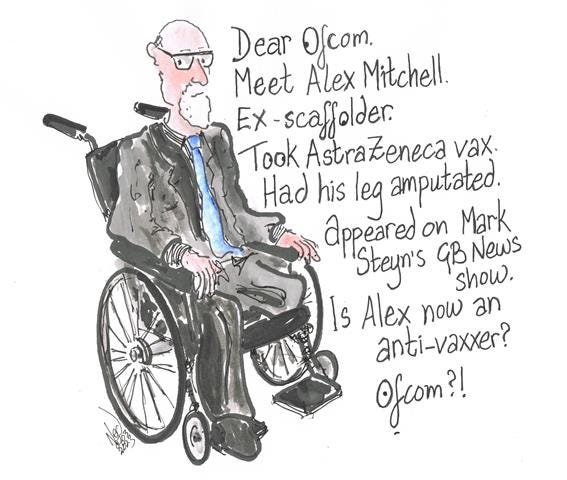 Dear Ofcom.
Meet Alex Mitchell.
Ex-scaffolder.
Took AstraZeneca vax.
Had his leg amputated.
appeared on Mark
Steyn's GB News
show.
Is Alex now an
anti-vaxxer?
Ofcom?!